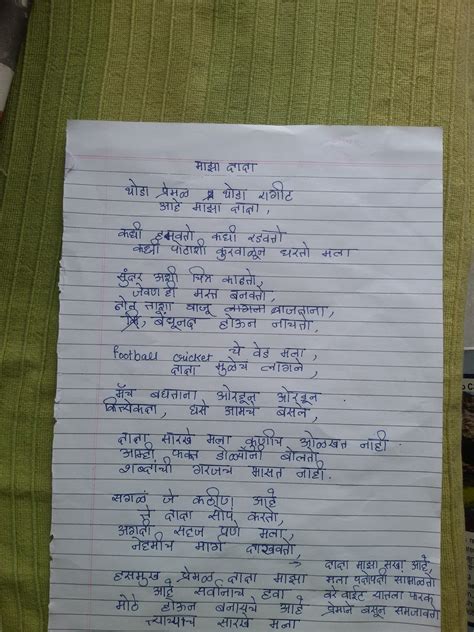 माझा दादा
थोडा प्रेमळ थोडा रागीट
आहे माझा दादा,
कधी हसवतो कधी रडवतो
कधी पोटाशी कुरवाळून धरतो मला
सुंदर अशी चित्र काढतो,
जेवण ही मस्त बनवतो,
ढोल ताशा बाजू लागला वाजताना
बेधूनद होऊन नाचतो.
football cricket चे वेड मला,
दादा मुळेच लागले,
मॅच बघताना ओरडून ओरडून
घसे आमचे बसले,
दादा सारखे मला कुणीच ओळखत नाही.
आम्ही फक्त डोळ्यांनी बोलतो
शब्दांची गरजच भासत नाही.
सगळं जे कठीण आहे
ते दादा सोपं करतो,
अगदी सहज पणे मला,
नेहमीच मार्ग दाखवतो,
हसमुख प्रेमळ दादा माझा
आहे सर्वानाच हवा
मोठे होऊन बनायचं आहे
त्याच्याच सारखे मला
→ दादा माझा सखा आहे,
मला पदोपदी सांभाळतो
बरे वाईट यातला फरक,
प्रेमाने बसून समजावतो